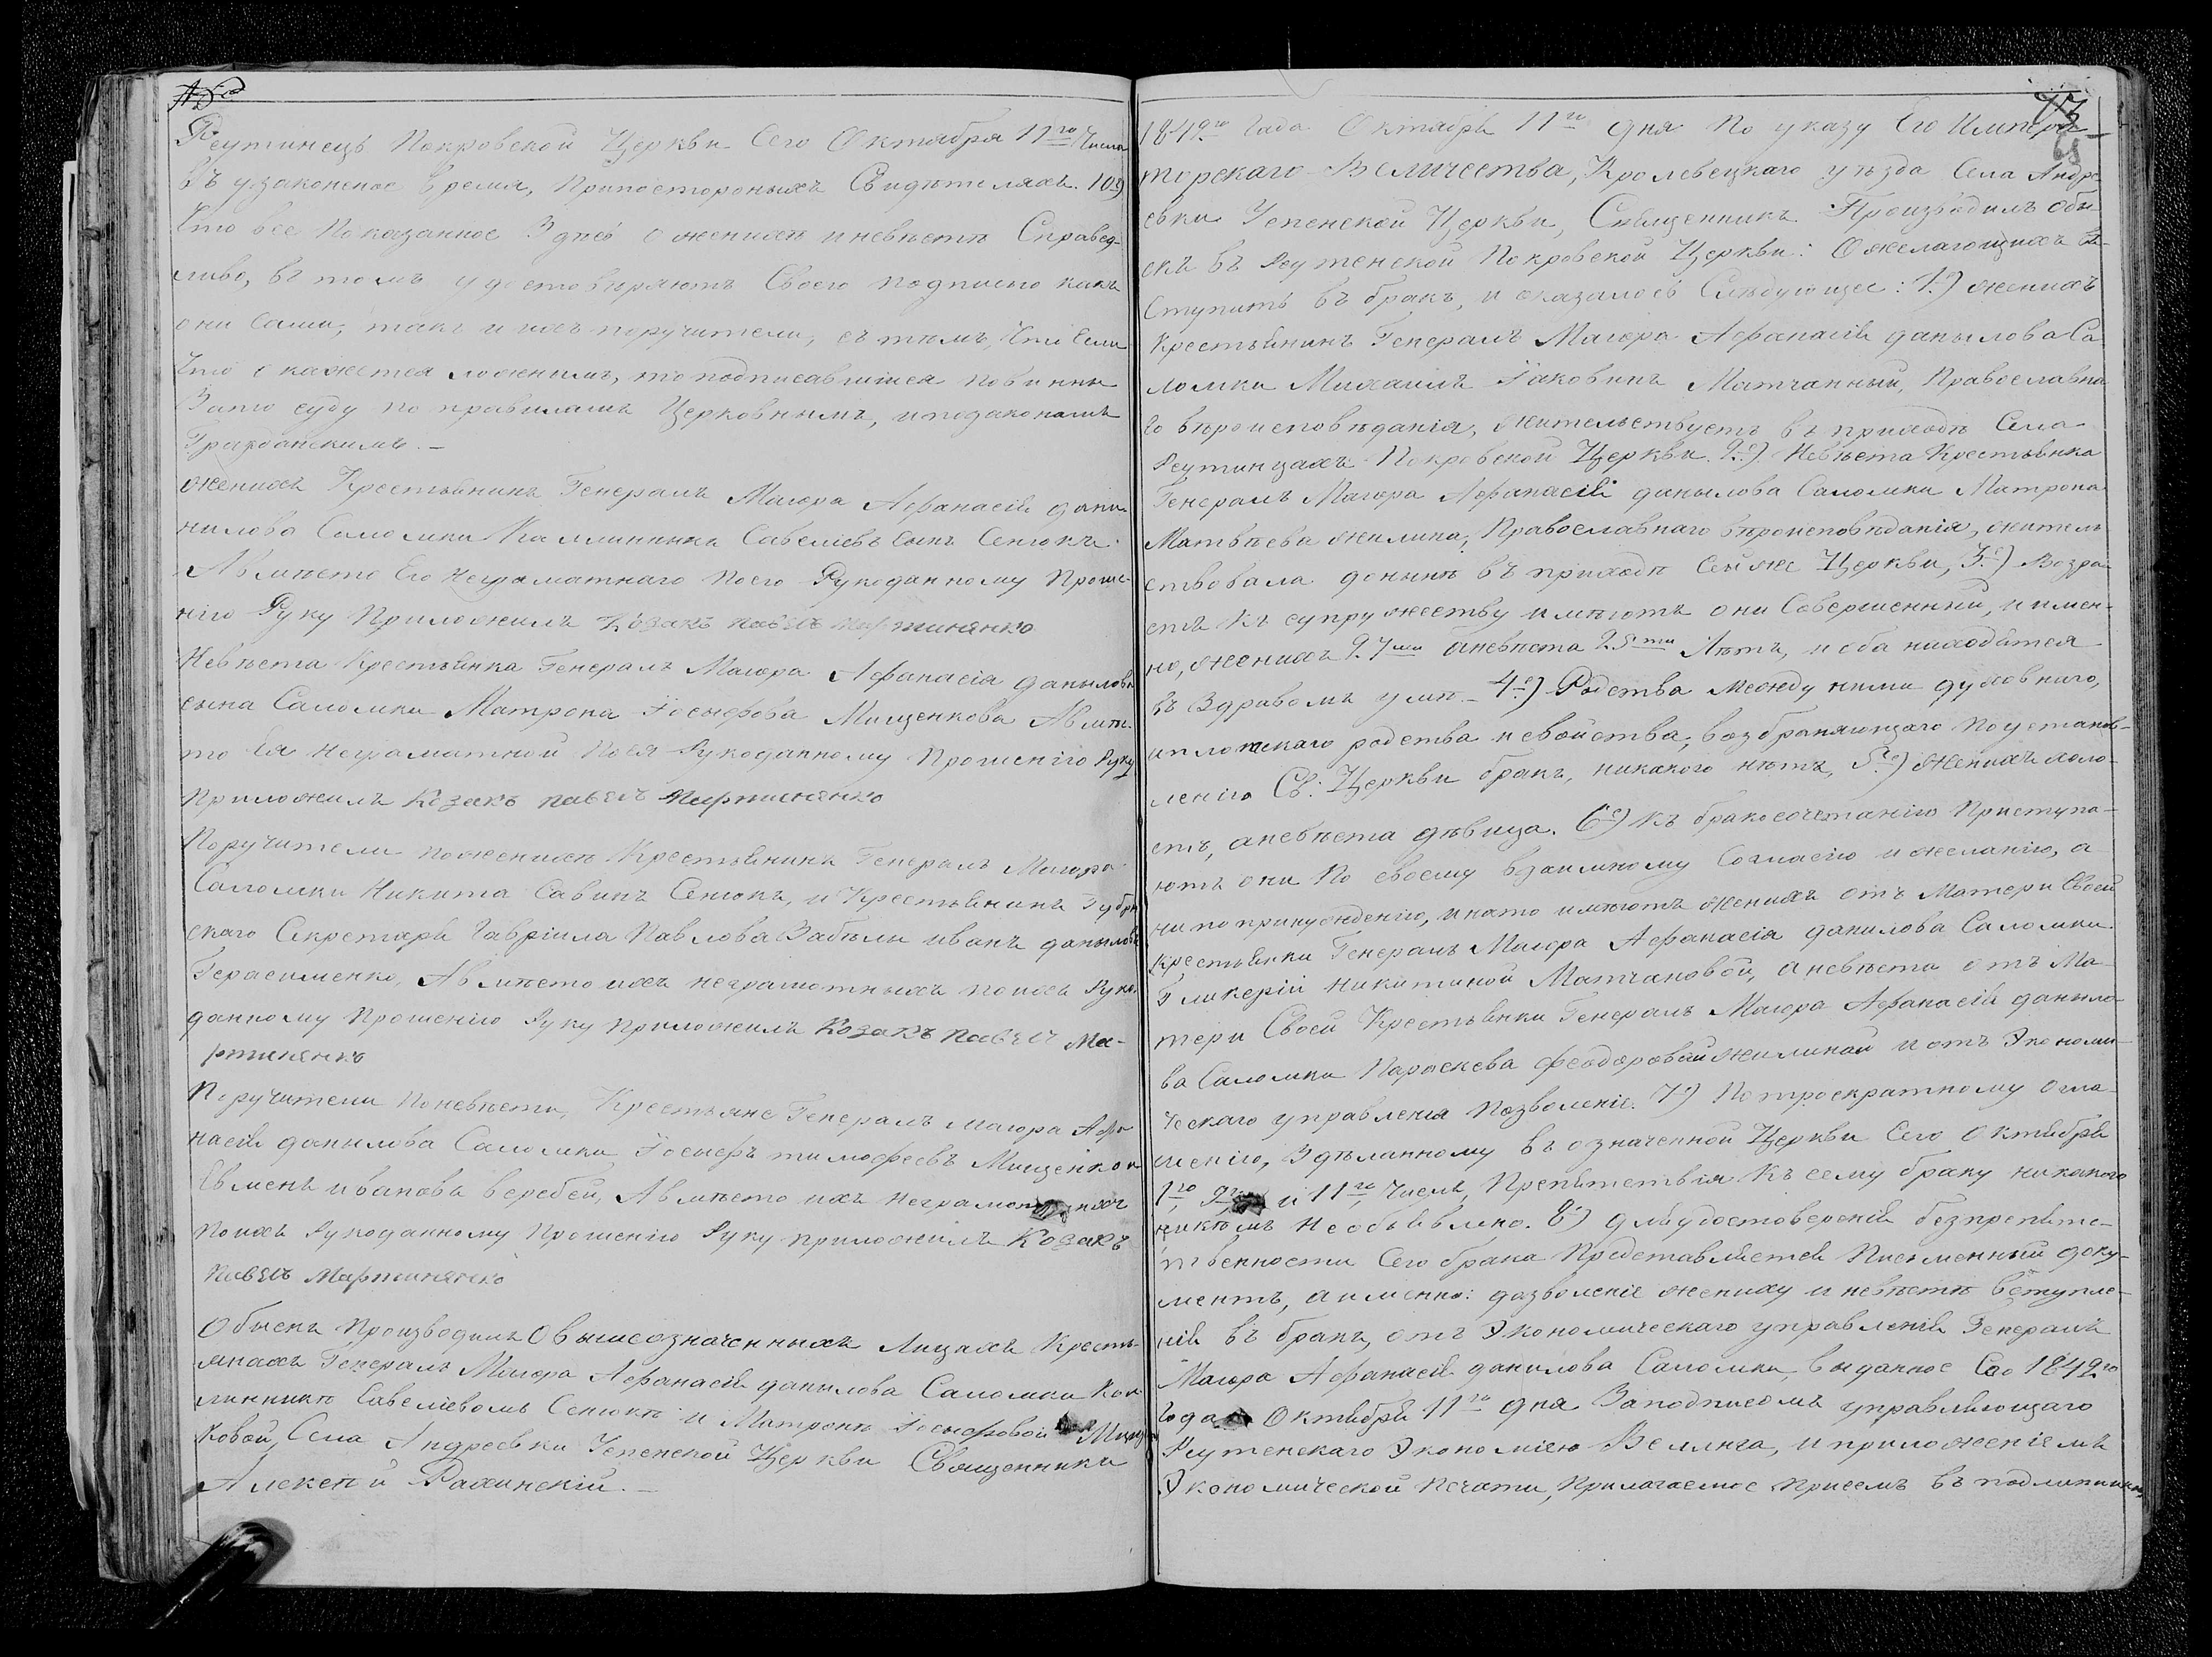 Реутинецъ Покровской Церкви Сего Октября 11го Числа
въ узаконеное время, при постороныхъ Свидѣтеляхъ. 10е)
Что все Показанное Здѣсь о женихѣ и невѣстѣ Справед-
ливо, въ томъ удостовѣряютъ Своею подписью какъ
они Сами, такъ и ихъ поручители, съ тѣмъ, Что Если
Что окажется ложнымъ, то подписавшіися повинны
Зато суду по правиламъ Церковнымъ, и по законамъ
Гражданскимъ. —
Женихъ Крестьянинъ Генералъ Маіора Афанасія Дани-
нилова Саломки Каллинникъ Савеліевъ Сынъ Сенюкъ
А вмѣсто Его Неграматнаго По его Рукоданному Проше-
нію Руку Приложилъ Козакъ павелъ мартиненко
Невѣста Крестьянка Генералъ Маіора Афанасія Данылова
сына Саломки Матрона Іосыфова Мищенкова А вмѣс-
то Ея Неграматной По ея Рукоданному Прошенію Руку
Приложилъ Козакъ павелъ мартиненко
Поручители по женихѣ Крестьянинъ Генералъ Маіора
Саломки Никита Савинъ Сенюкъ, и Крестьянинъ Губрн
скаго Секретаря Гавріила Павлова Забѣлы иванъ данылов
Герасименко, А вмѣсто ихъ неграмотныхъ по ихъ Руко
данному Прошенію Руку Приложилъ Козакъ павелъ Ма-
ртиненко
Поручители По невѣсти, Крестьяне Генералъ Маіора Афа
насія данылова Саломки Іосыфъ тимофеевъ Мищенко и
Евменъ ивановъ веребей, А вмѣсто ихъ неграмотныхъ
по ихъ Рукоданному Прошенію Руку приложилъ Козакъ
павелъ Мартиненко
Обыскъ Производилъ О вышеозначенныхъ Лицахъ Кресть-
янахъ Генералъ Маіора Афанасія данылова Саломки Кал
линникѣ Савеліевомъ Сенюкѣ и Матронѣ Іосыфовой Мищен
ковой, Села Андреевки Успенской Церкви Священникъ
Алексѣй Рахинскій. —
1849го Года Октября 11го дня По указу Его Импера-
торскаго Величества, Кролевецкаго уѣзда Села Андре-
евки Успенской Церкви, Священникъ Производилъ обы-
скъ въ Реутенской Покровской Церкви: О желающихъ в-
ступить въ бракъ, и оказалось Слѣдующее: 1е) женихъ
Крестьянинъ Генералъ Маіора Афанасія данылова Са
ломки Михаилъ Іаковинъ Матчанный, Православна
го вѣроисповѣданія, жительствуетъ въ приходѣ Села
Реутинцахъ Покровской Церкви. 2е) Невѣста Крестьянка
Генералъ Маіора Афанасія данылова Саломки Матрона
Матвѣева жилина, Православнаго вѣроисповѣданія, житель
ствовала донынѣ въ приходѣ Сей же Церкви, 3е) Возра
стъ къ супружеству имѣютъ они Совершенный, и имен-
но, женихъ 27ми а невѣста 25ти Лѣтъ, и оба находятся
въ Здравомъ умѣ — 4е) Родства между ними духовнаго,
и плотскаго родства и свойства, возбраняющаго По установ-
ленію Св: Церкви бракъ, никакого нѣтъ, 5е) Женихъ холо-
стъ, а невѣста дѣвица. 6е) Къ бракосочетанію Приступа-
ютъ они По своему взаимному Согласію и желанію, а
ни по принужденію, и на то имѣютъ женихъ отъ Матери Своей
Крестьянки Генералъ Маіора Афанасія данилова Саломки
Гликеріи Никитиной Матчановой, а невѣста отъ Ма-
тери Своей Крестьянки Генералъ Маіора Афанасія даныло-
ва Саломки Параскева Феодоровой жилиной и отъ Экономи-
ческаго управленія Позволеніе. 7е) По троекратному огла-
шенію, Здѣланному въ означенной Церкви Сего Октября
1го, 9го и 11го Числъ, Препятствія къ сему браку никакого
никѣмъ не обьявлено. 8е) для удостоверенія безпрепятс-
твенности Сего брака Представляется Письменный доку-
ментъ, а именно: дозволеніе жениху и невѣстѣ вступле-
нія въ бракъ, отъ Экономическаго управленія Генералъ
Маіора Афанасія данилова Саломки, выданное Сего 1849го
года Октября 11го дня За подписомъ управляющаго
Реутенскаго Экономіею Велинга, и приложеніемъ
Экономической Печати, Прилагаемое присемъ въ подлинник